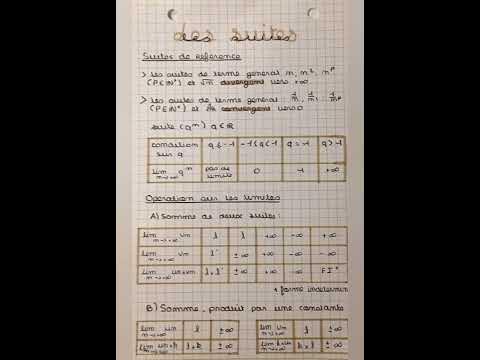 des suites
Suites de reference
> les suites de terme general n, n², nᵖ
(P∈ℕ*) et √n divergent vers +∞
> les suites de terme general : 1/n, 1/n², 1/nᵖ
(P∈ℕ*) et convergent vers 0
suite (qⁿ) q∈ℝ
condition sur q | q ≤ -1 | -1 < q < 1 | q = 1 | q > 1
lim qⁿ n→+∞ | pas de limite | 0 | 1 | +∞
Operation sur les limites
A) Somme de deux suites :
lim un n→+∞ | l | l | +∞ | -∞ | +∞
lim vn n→+∞ | l' | ±∞ | +∞ | -∞ | -∞
lim un+vn n→+∞ | l+l' | ±∞ | +∞ | -∞ | FI*
* forme indetermin
B) Somme, produit par une constante
lim un n→+∞ | l | ±∞ lim un n→+∞ | l | ±∞
lim un+k n→+∞ | l+k | ±∞ lim k×un n→+∞ | k×l | ±∞